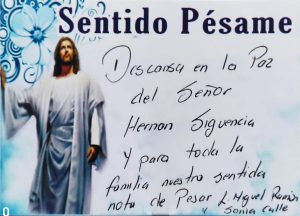 Sentido Pésame
Descansa en la Paz
del Señor
Hernan Siguencia
y para toda la
familia nuestro sentida
nota de Pesar L. Miguel Ramón
y Sonia Calle